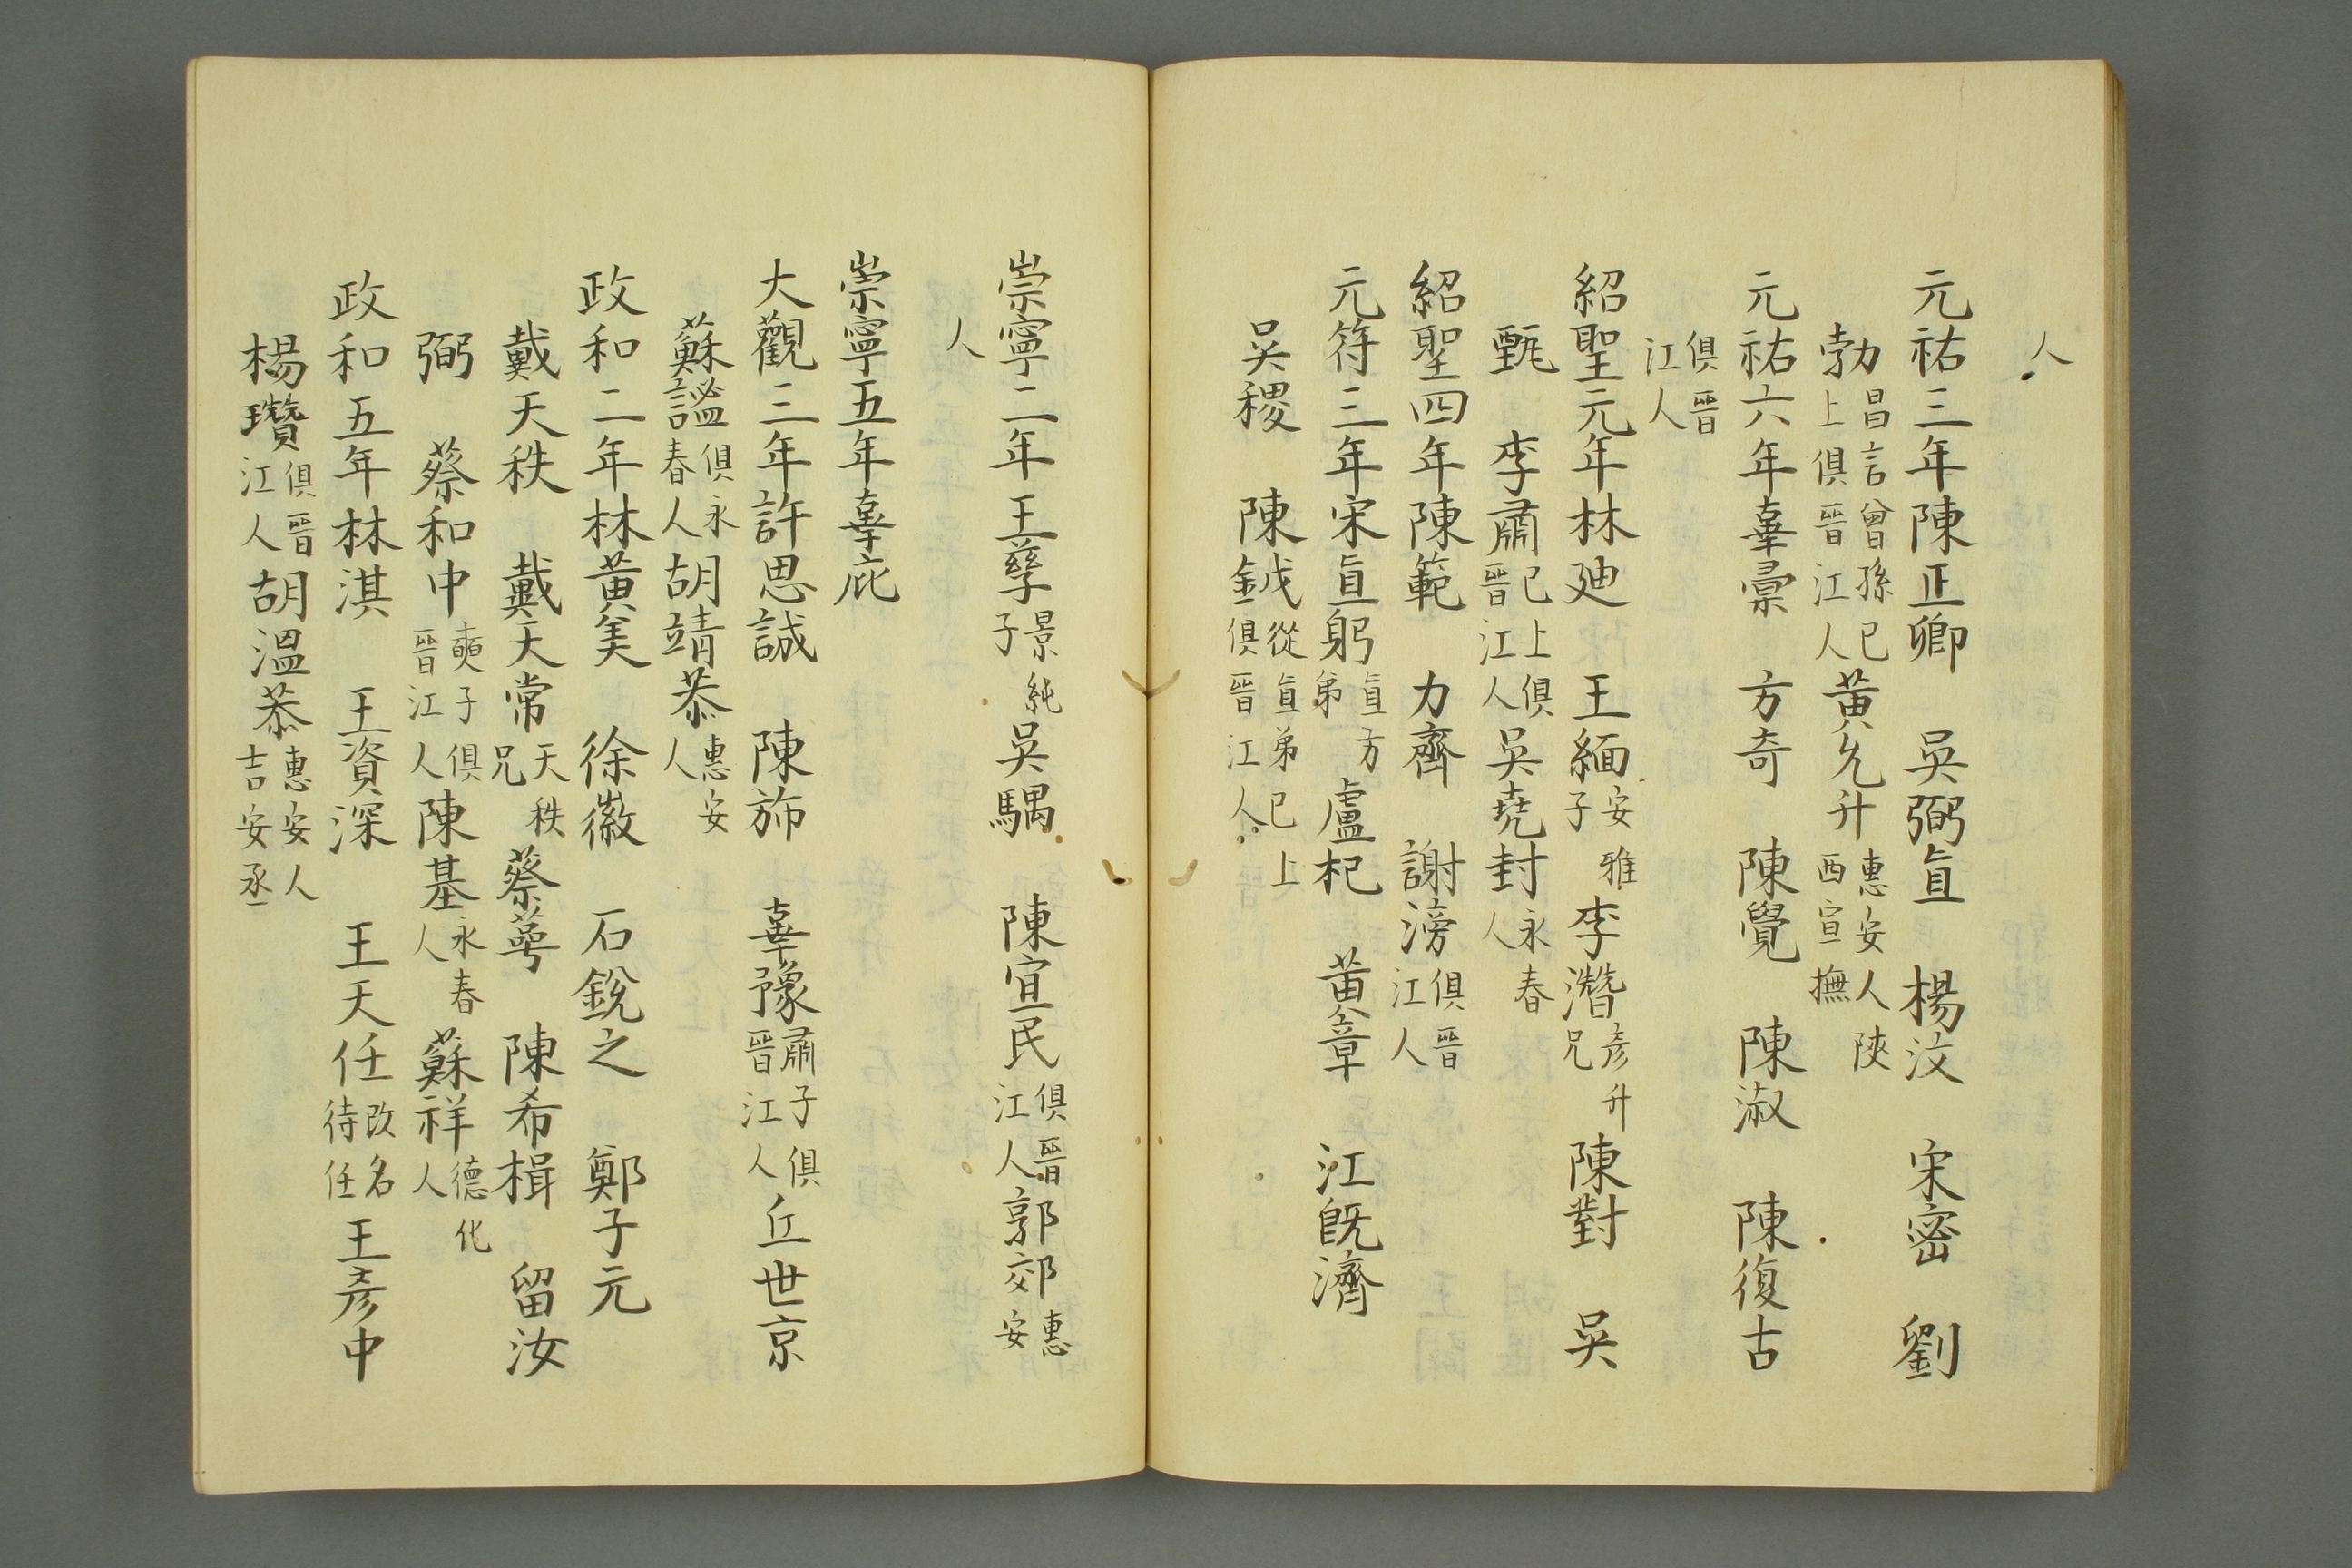 人
元祐三年陳正卿　吳弼直　楊汶　宋密　劉
勃昌言曾孫已上俱晉江人黃允升惠安人陝西宣撫
元祐六年辜㮚　方奇　陳覺　陳淑　陳復古
俱晉江人
紹聖元年林廸　王緬安雅子李灊彥升兄陳對　吳
甄　李肅已上俱晉江人吳堯封永春人
紹聖四年陳範　力齊　謝滂俱晉江人
元符三年宋直躬直方弟盧杞　黃章　江既濟
吳稷　陳鉞從直弟已上俱晉江人
崇寧二年王孳景純子吳騳　陳宜民俱晉江人郭郊惠安
人
崇寧五年辜庇
大觀三年許思誠　陳斾　辜豫肅子俱晉江人丘世京
蘇謐俱永春人胡靖恭惠安人
政和二年林黃美　徐徽　石銳之　鄭子元
戴天秩　戴天常天秩兄蔡蕚　陳希楫　留汝
弼　蔡和中奭子俱晉江人陳基永春人蘇祥德化人
政和五年林淇　王資深　王天任改名待任王彥中
楊瓚俱晉江人胡溫恭惠安人吉安丞